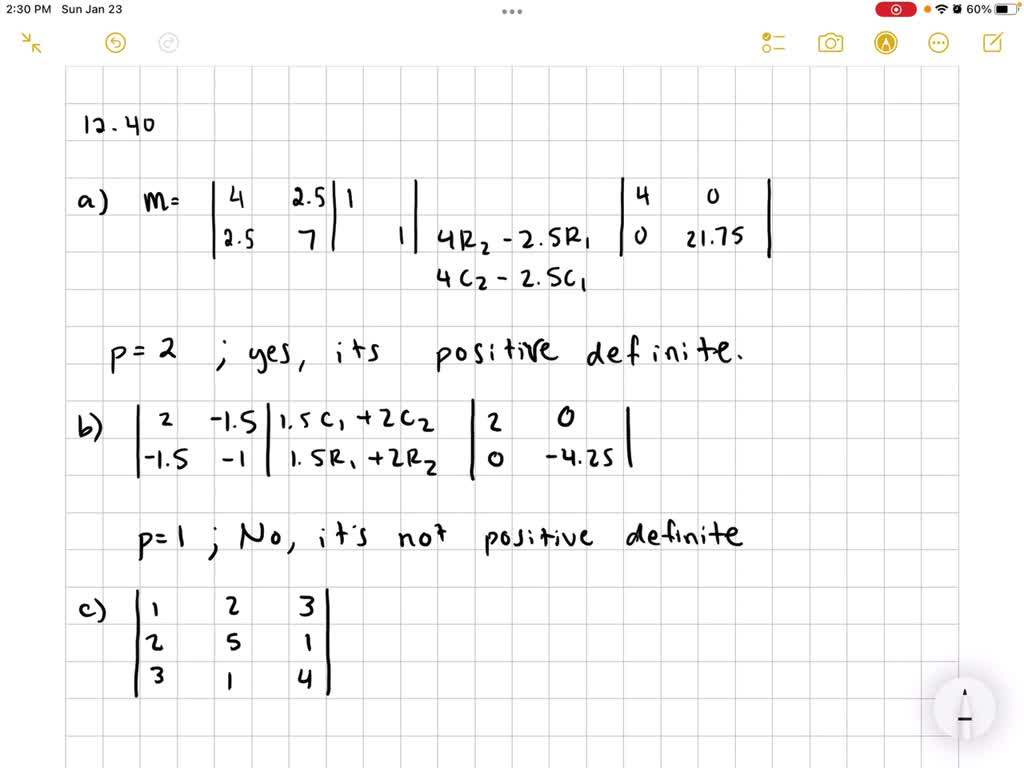 2:30 PM Sun Jan 23 60%
12.40
a) m= | 4 2.5 | 1 | | 4 0 |
| 2.5 7 | 1 | 4R₂ - 2.5R₁ | 0 21.75 |
4C₂ - 2.5C₁
p=2 ; yes, its positive definite.
b) | 2 -1.5 | 1.5C₁ +2C₂ | 2 0 |
| -1.5 -1 | 1.5R₁ +2R₂ | 0 -4.25 |
p=1 ; No, it's not positive definite
c) | 1 2 3 |
| 2 5 1 |
| 3 1 4 |